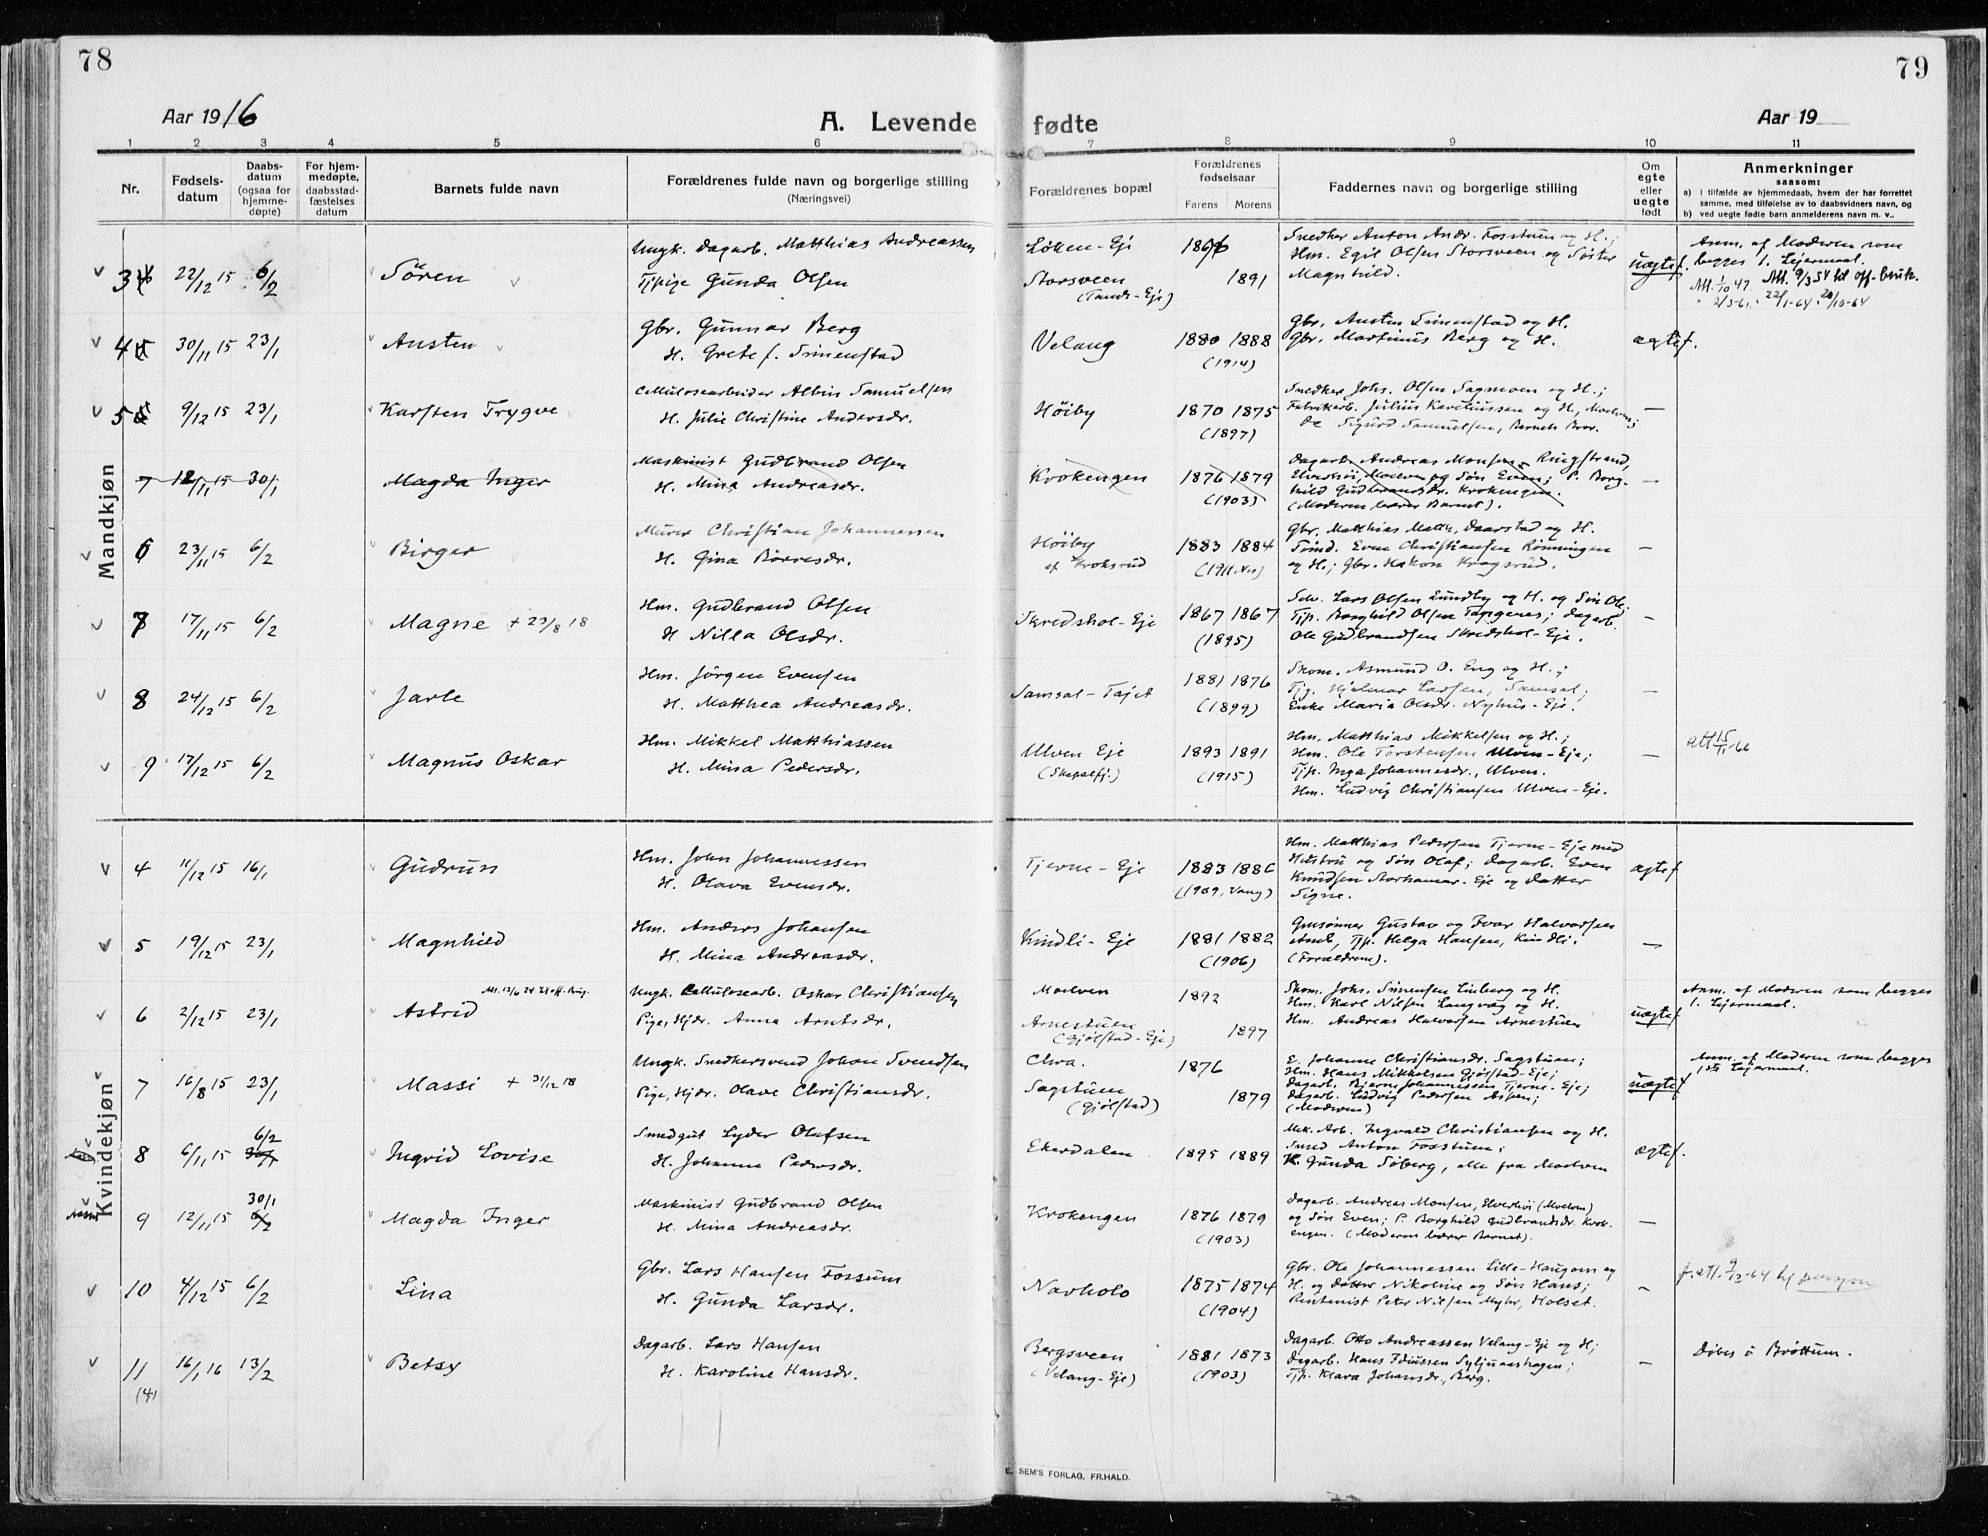 78
Aar 1916
A. Levende
1 2 3 4 5 6
Nr.
Fødsels-
datum
Daabs-
datum
(ogsaa for
hjemme-
døpte)
For hjem-
medøpte,
daabsstad-
fæstelses
datum
Barnets fulde navn
Forældrenes fulde navn og borgerlige stilling
(Næringsvei)
Mandkjøn
3 22/12 15 6/2 Sören
Ungk. Dagarb. Matthias Andreassen
Tjpige Gunda Olsen
4 30/11 15 23/1 Austen
Gbr. Gunnar Berg
H. Grete f. Simenstad
5 9/12 15 23/1 Karsten Trygve
Cellulosearbeider Albin Samuelsen
H. Julie Christine Andersdr.
7 12/11 15 30/1 Magda Inger
Maskinist Gudbrand Olsen
H. Mina Andreasdr.
6 23/11 15 6/2 Birger
Murer Christian Johannessen
H. Gina Börresdr.
7 17/11 15 6/2 Magne + 23/8 18
Hm. Gudbrand Olsen
H Nilla Olsdr.
8 24/12 15 6/2 Jarle
Hm. Jörgen Evensen
H. Matthea Andreasdr.
9 17/12 15 6/2 Magnus Oskar
Hm. Mikkel Matthiassen
H. Mina Pedersdr.
Kvindekjøn
4 11/12 15 16/1 Gudrun
Hm. John Johannessen
H. Olava Evensdr.
5 19/12 15 23/1 Magnhild
Hm. Anders Johansen
H. Mina Andreasdr.
6 2/12 15 23/1 Astrid
Ungk. Cellulosearb. Oskar Christiansen
Pige, Hjdr. Anna Arntsdr.
7 16/8 15 23/1 Massi + 31/12 18
Ungk. Snedkersvend Johan Svendsen
Pige, Hjdr. Olave Christiansdr.
8 6/11 15 6/2 Ingrid Lovise
Smedgut Lyder Olafsen
H. Johanna Pedersdr.
9 12/11 15 30/1 Magda Inger
Maskinist Gudbrand Olsen
H. Mina Andreasdr.
10 4/12 15 6/2 Lina
Gbr. Lars Hansen Fossum
H. Gunda Larsdr.
11 16/1 16 13/2 Betsy
(4)
Dagarb. Lars Hansen
H. Karoline Hansdr.
79
fødte
Aar 19
7 8 9 10 11
Forældrenes bopæl
Forældrenes
fødselsaar
Farens Morens
Faddernes navn og borgerlige stilling
Om
egte
eller
uegte
født
Anmerkninger
saasom:
a) I tilfælde av hjemmedaab, hvem der har forrettet
samme, med tilføielse av to daabsvidners navn, og
b) ved uegte fødte barn anmelderens navn m. v..
Löken-Eje
Storsveen 1891
Snedker Anton Andr. Fosstum og H.;
Hm. Egil Olsen Storsveen og Söster
Magnhild.
uegtef.
Anm. af Moderen som
begges 1. Lejermaal.
Att. 9/3 54 til off. bruk.
Velang 1880 1888
(1914)
Gbr. Austen Simenstad og H.
Gbr. Martinus Berg og H.
egtef.
Höiby 1870 1875
(1897)
Snedker Johs. Olsen Sagmoen og H.;
Fabrikarb. Julius Kareliussen og H, Moelven;
Sigurd Samuelsen, Barnets Bror.
—
Krokengen 1876 1879
(1903)
Dagarb. Andreas Monsen, Ringstrand,
Elverhöi, Moelven og Sön Even; P. Borg-
hild Gudbrandsdr. Krokengen.
(Moderen bærer Barnet).
—
Höiby
af Kroksrud
1883 1884
Gbr. Matthias Matth. Daarstad og H.
Tömd. Even Christiansen Rönningen
og H.; Gbr. Hakon Krogsrud.
—
Skredshol-Eje 1867 1867
(1895)
Selv. Lars Olsen Lundby og H. og Sön Ole.
Tjp. Borghild Olsen Tangenes; Dagarb.
Ole Gudbrandsen Skredshol-Eje.
—
Samsal-Tajet 1881 1876
(1899)
Skom. Asmund O. Eng og H.;
Tjg. Hjalmar Larsen, Samsal;
Enke Maria Olsdr. Nyhus-Eje.
—
Ulven Eje 1893 1891
(1915)
Hm. Matthias Mikkelsen og H.;
Hm. Ole Torstensen Ulven-Eje;
Tjp. Inga Johannesdr., Ulven.
Hm. Ludvig Christiansen Ulven-Eje.
Att 15/11-66
Tjerne-Eje 1883 1886
(1909, Vang)
Hm. Matthias Pedersen Tjerne-Eje med
Hustru og Sön Olaf; Dagarb. Even
Knudsen Storhamar-Eje og Datter
Signe.
egtef
Kindli-Eje 1881 1882
(1906)
Grmsönner Gustav og Ivar Halvorsen
Tjp. Helga Hansen, Kindli.
(Forældrene).
—
Moelven 1892
Arnestuen
(Gjölstad-Eje) 1897
Skom. Johs. Simensen Linberg og H.
Hm. Karl Nilsen Langvæg og H.
Hm. Andreas Halvorsen Arnestuen
uegtef
Anm. af Moderen som begges
1. Lejermaal.
1876
Sagstuen
(Gjölstad) 1879
E. Johanne Christiansdr. Sagstuen;
Hm. Hans Mikkelsen Gjölstad-Eje;
Dagarb. Bjarne Johannessen Tjerne-Eje;
Dagarb. Ludvig Pedersen Aspen;
(Moderen)
uegtef
Anm. af Moderen som begges
1ste Lejermaal.
Ekerdalen 1895 1889
Mek. Arb. Ingvald Christiansen og H.
Smed Anton Fosstum;
H. Gunda Söberg, alle fra Moelven
egtef.
Krokengen 1876 1879
(1903)
Dagarb. Andreas Monsen, Elverhöi (Moelven)
og Sön Even; P. Borghild Gudbrandsdr. Krok-
engen. (Moderen bærer Barnet).
—
Navholo 1875 1874
(1904)
Gbr. Ole Johannessen Lille-Haugom og
H. og Datter Nikoline og Sön Hans;
Rentenist Peter Nilsen Myhr, Holset.
—
Bergsveen
(Velang-Eje)
1881 1873
(1903)
Dagarb. Otto Andreassen Velang-Eje og H;
Dagarb. Hans Syljuaashagen;
Tjp. Klara Johansdr., Berg.
—
Döbes i Bröttum.
E. SEM'S FORLAG, FR.HALD.